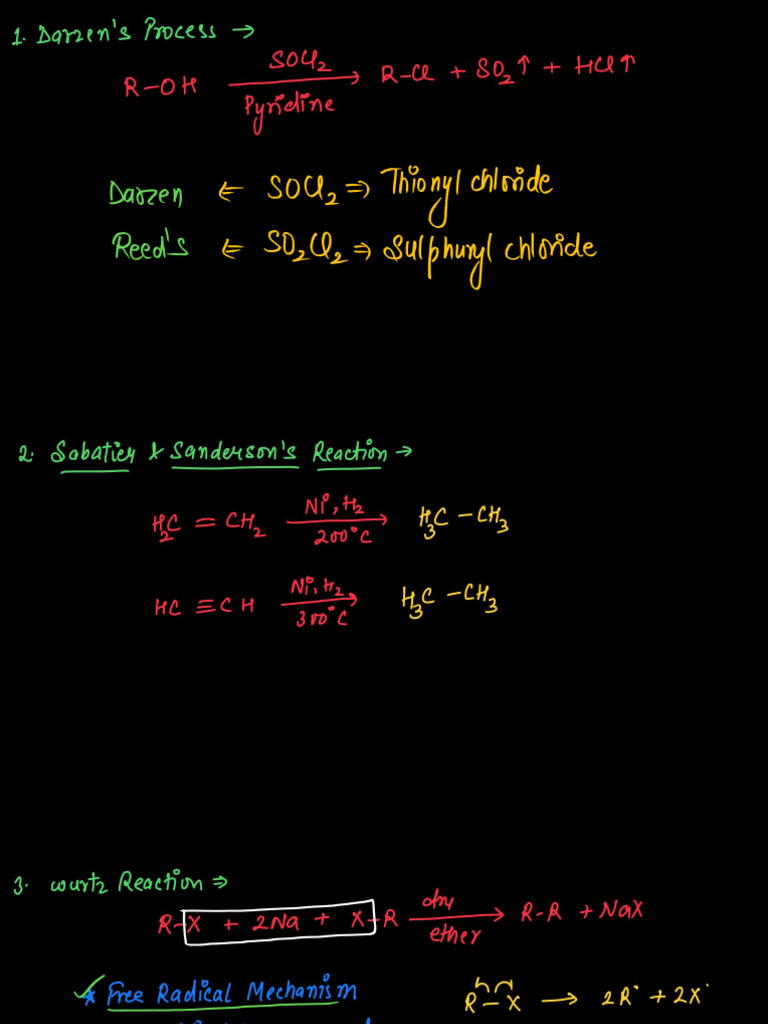 1. Darzen's Process →
R-OH —SOCl2/Pyridine→ R-Cl + SO2↑ + HCl↑
Darzen ⇐ SOCl2 ⇒ Thionyl chloride
Reed's ⇐ SO2Cl2 ⇒ Sulphuryl chloride
2. Sabatier & Sanderson's Reaction →
H2C = CH2 —Ni, H2/200°C→ H3C-CH3
HC ≡ CH —Ni, H2/300°C→ H3C-CH3
3. wurtz Reaction ⇒
R-X + 2Na + X-R —dry/ether→ R-R + NaX
* Free Radical Mechanism R-X → 2R• + 2X•